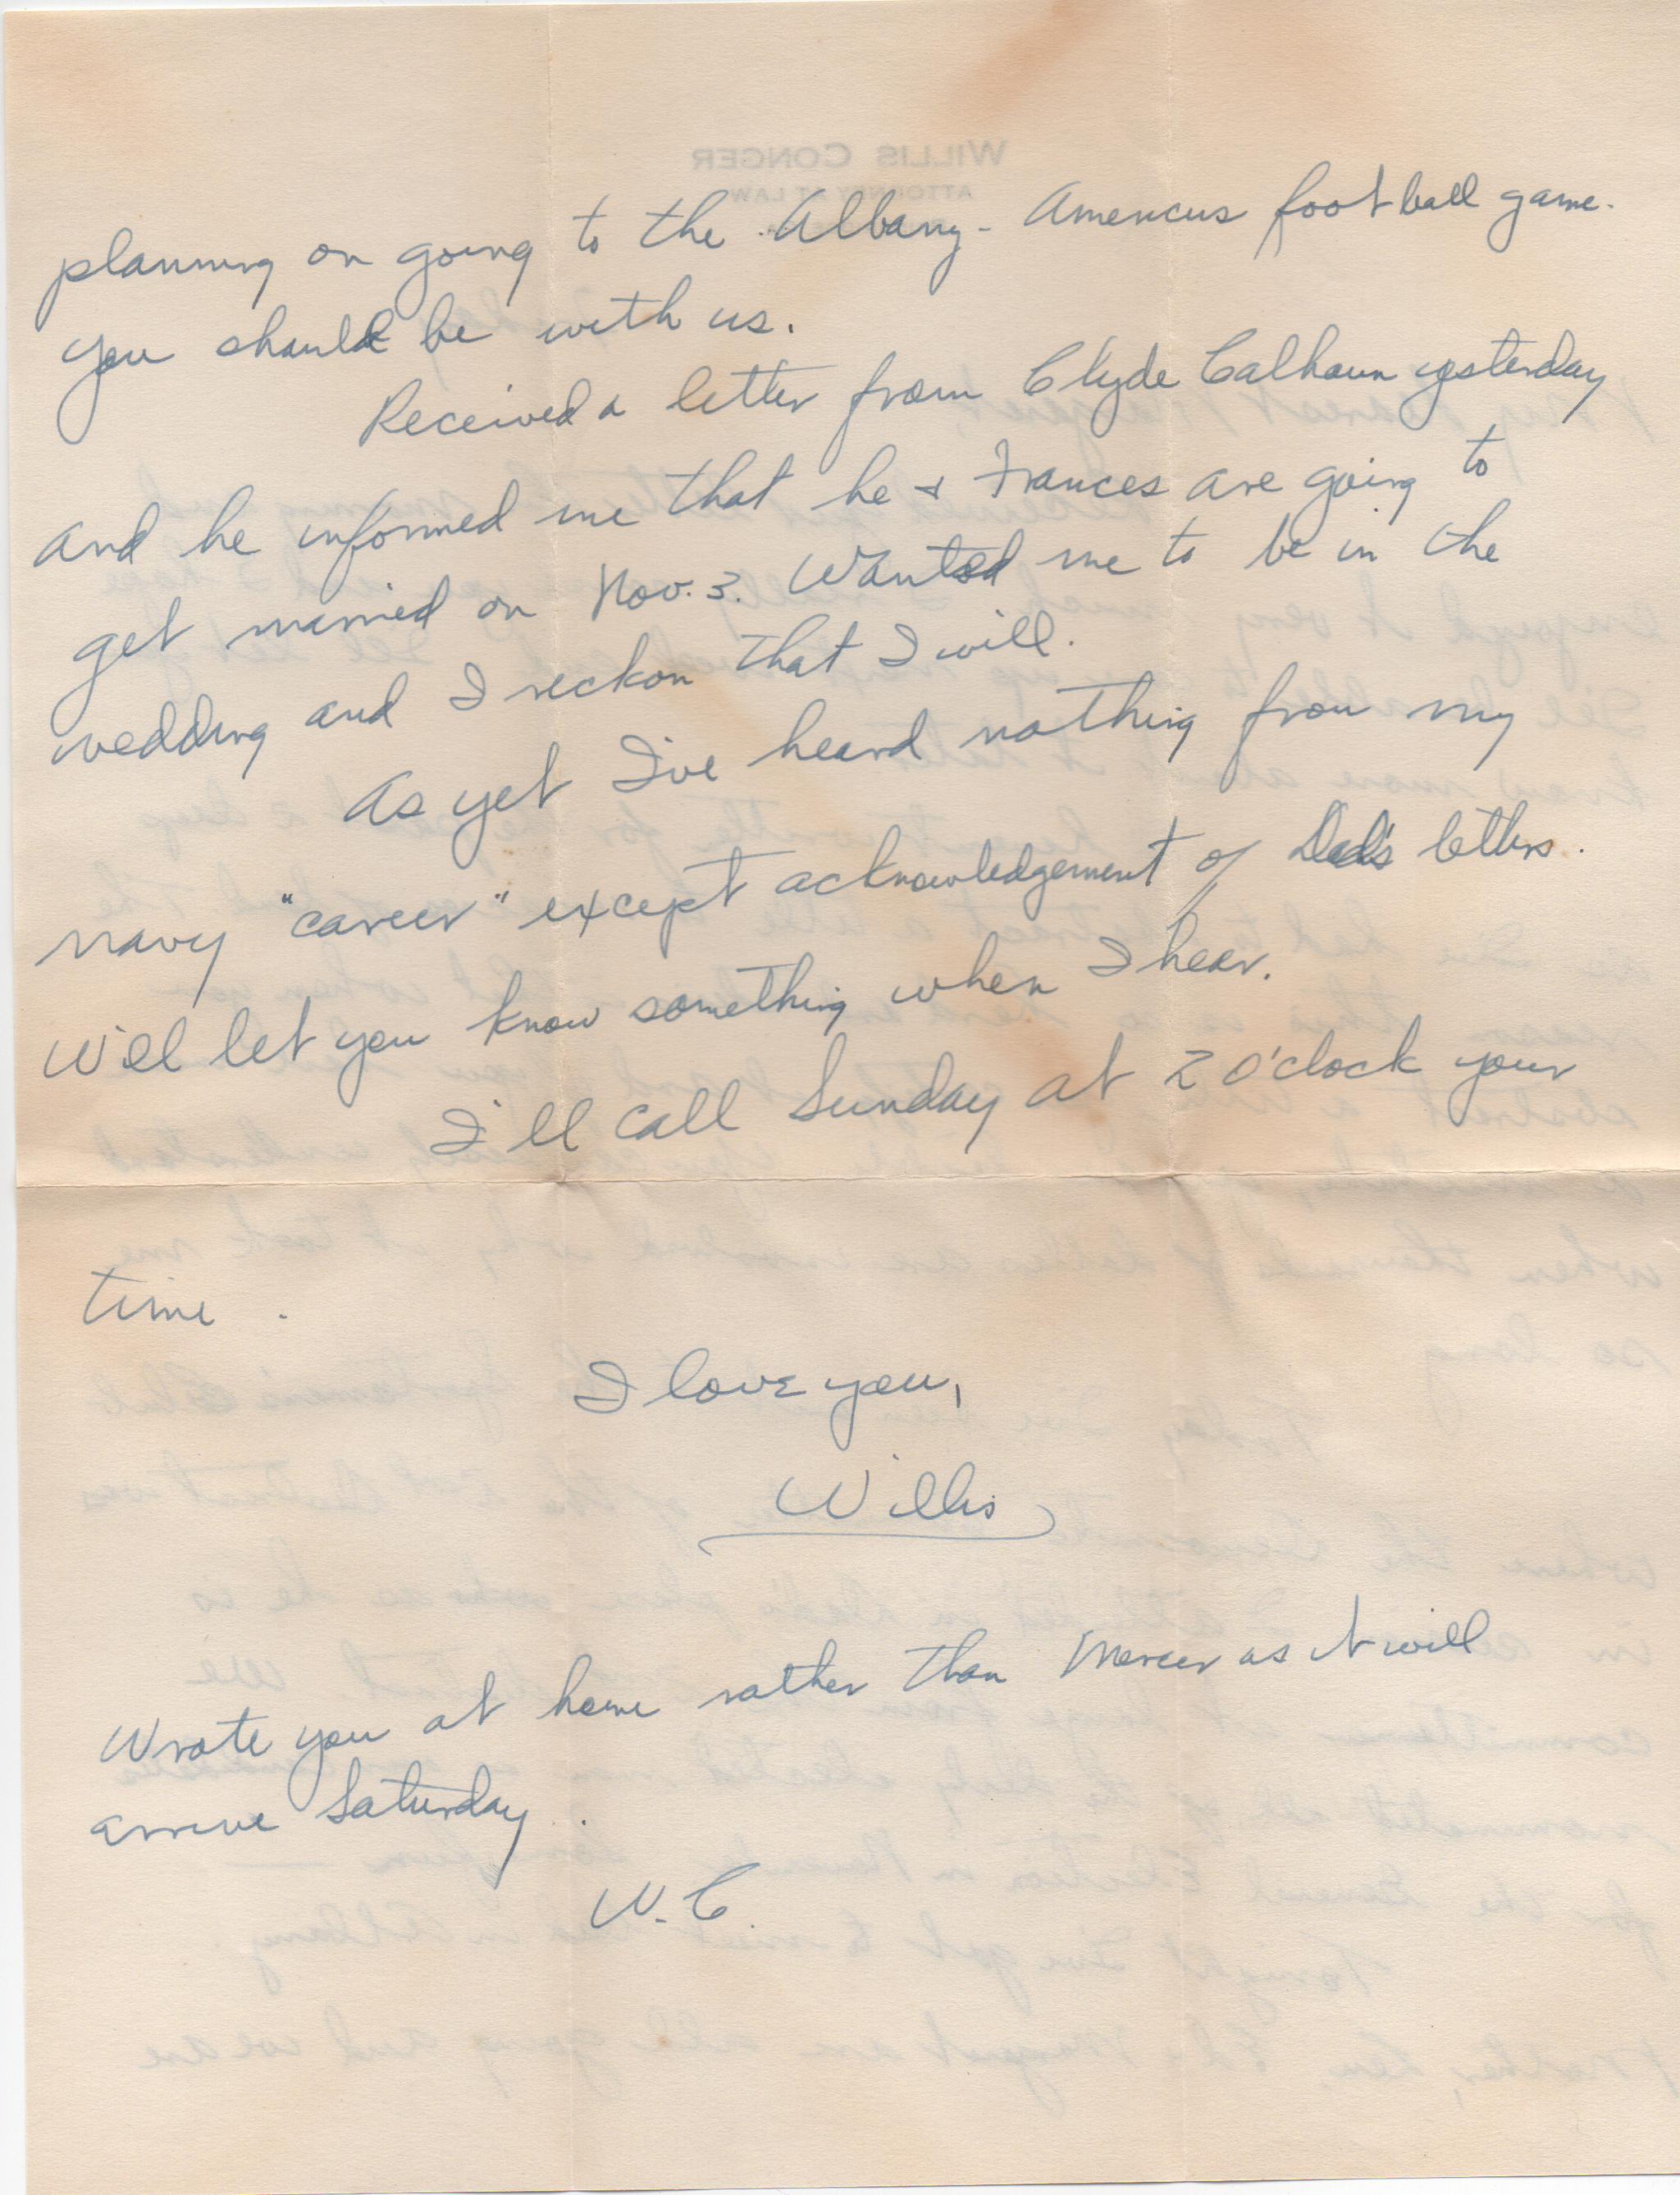 WILLIS CONGER
ATTORNEY AT LAW
planning on going to the Albany - Americus football game.
You should be with us.
Received a letter from Clyde Calhoun yesterday
and he informed me that he & Frances are going to
get married on Nov. 3. Wanted me to be in the
wedding and I reckon that I will.
As yet I've heard nothing from my
navy "career" except acknowledgement of Dad's letters.
Will let you know something when I hear.
I'll call Sunday at 2 o'clock your
time.
I love you,
Willis
Wrote you at home rather than Mercer as it will
arrive Saturday.
W.C.